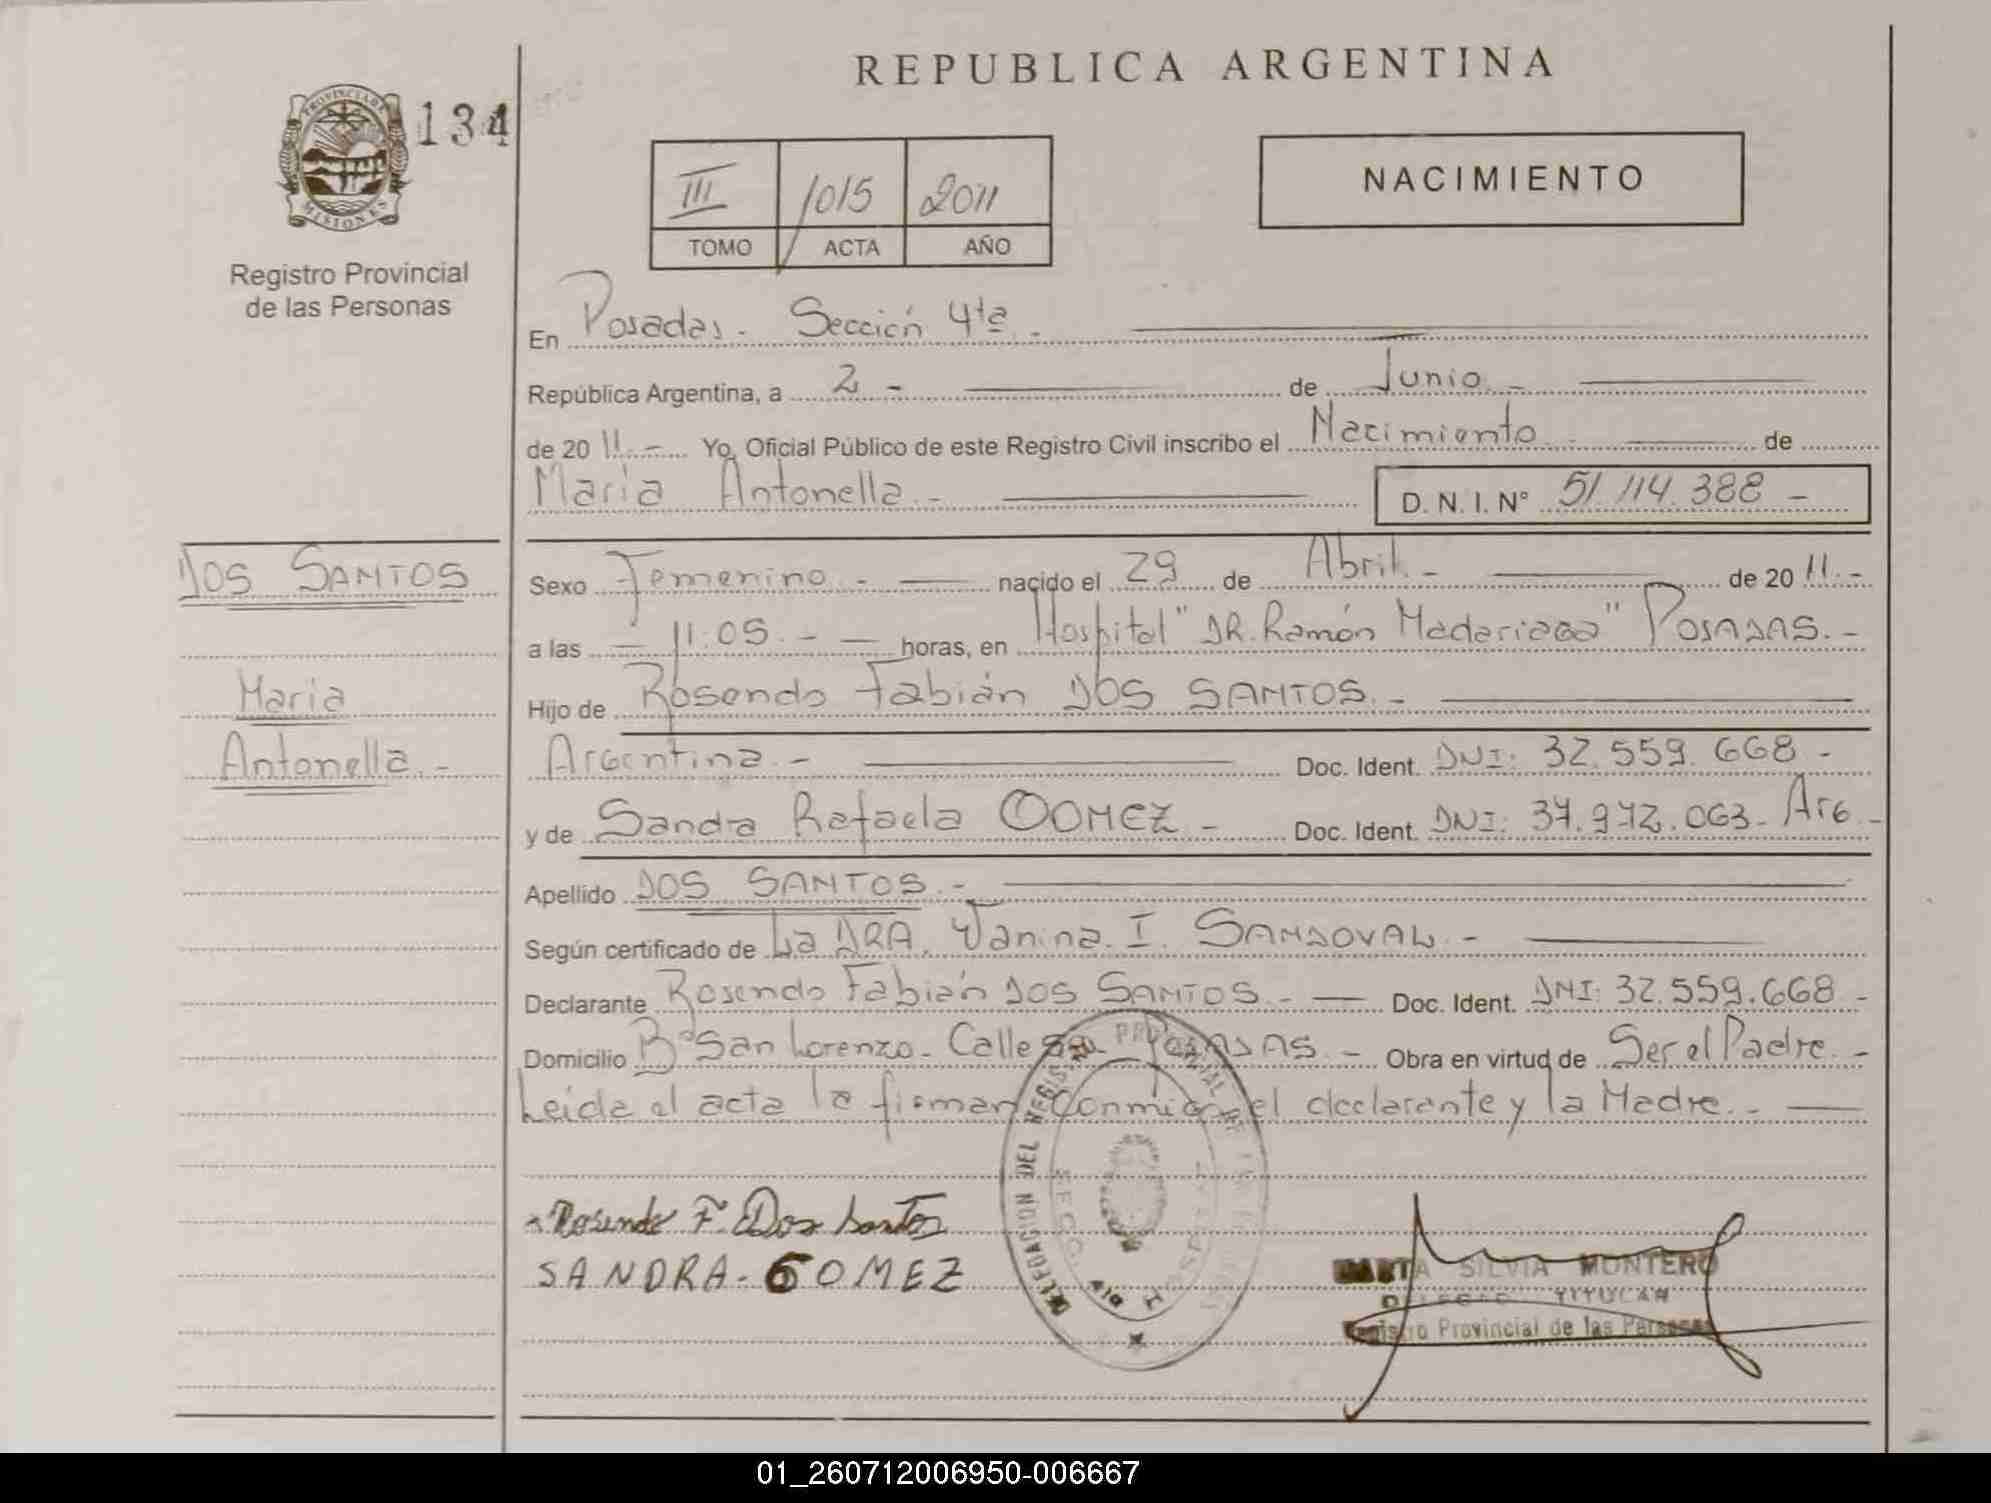 REPUBLICA ARGENTINA
PROVINCIA DE
MISIONES
134
Registro Provincial
de las Personas
III 1015 2011
TOMO ACTA AÑO
NACIMIENTO
En Posadas - Sección 4ta -
República Argentina, a 2 - de Junio -
de 20 11.- Yo, Oficial Público de este Registro Civil inscribo el Nacimiento - de
Maria Antonella.- D. N. I. Nº 51.114.388 -
DOS SANTOS
Maria
Antonella.-
Sexo Femenino.- nacido el 29 de Abril.- de 20 11.-
a las - 11:05.- - horas, en Hospital "DR. Ramón Madariaga" POSADAS.-
Hijo de Rosendo Fabián DOS SANTOS.-
Argentina.- Doc. Ident. DNI: 32.559.668 -
y de Sandra Rafaela GOMEZ.- Doc. Ident. DNI: 37.972.063- Arg.-
Apellido DOS SANTOS.-
Según certificado de La DRA. Vanina. I. SANDOVAL.-
Declarante Rosendo Fabián DOS SANTOS.- Doc. Ident. DNI: 32.559.668 -
Domicilio Bº San Lorenzo- Calle POSADAS.- Obra en virtud de Ser el Padre.-
Leída el acta la firman conmigo el declarante y la Madre.-
DELEGACION DEL REGISTRO PROVINCIAL DE LAS
Rosendo F. Dos Santos
SANDRA - GOMEZ
MARTA SILVIA MONTERO
TITULAR
Registro Provincial de las Personas
01_260712006950-006667